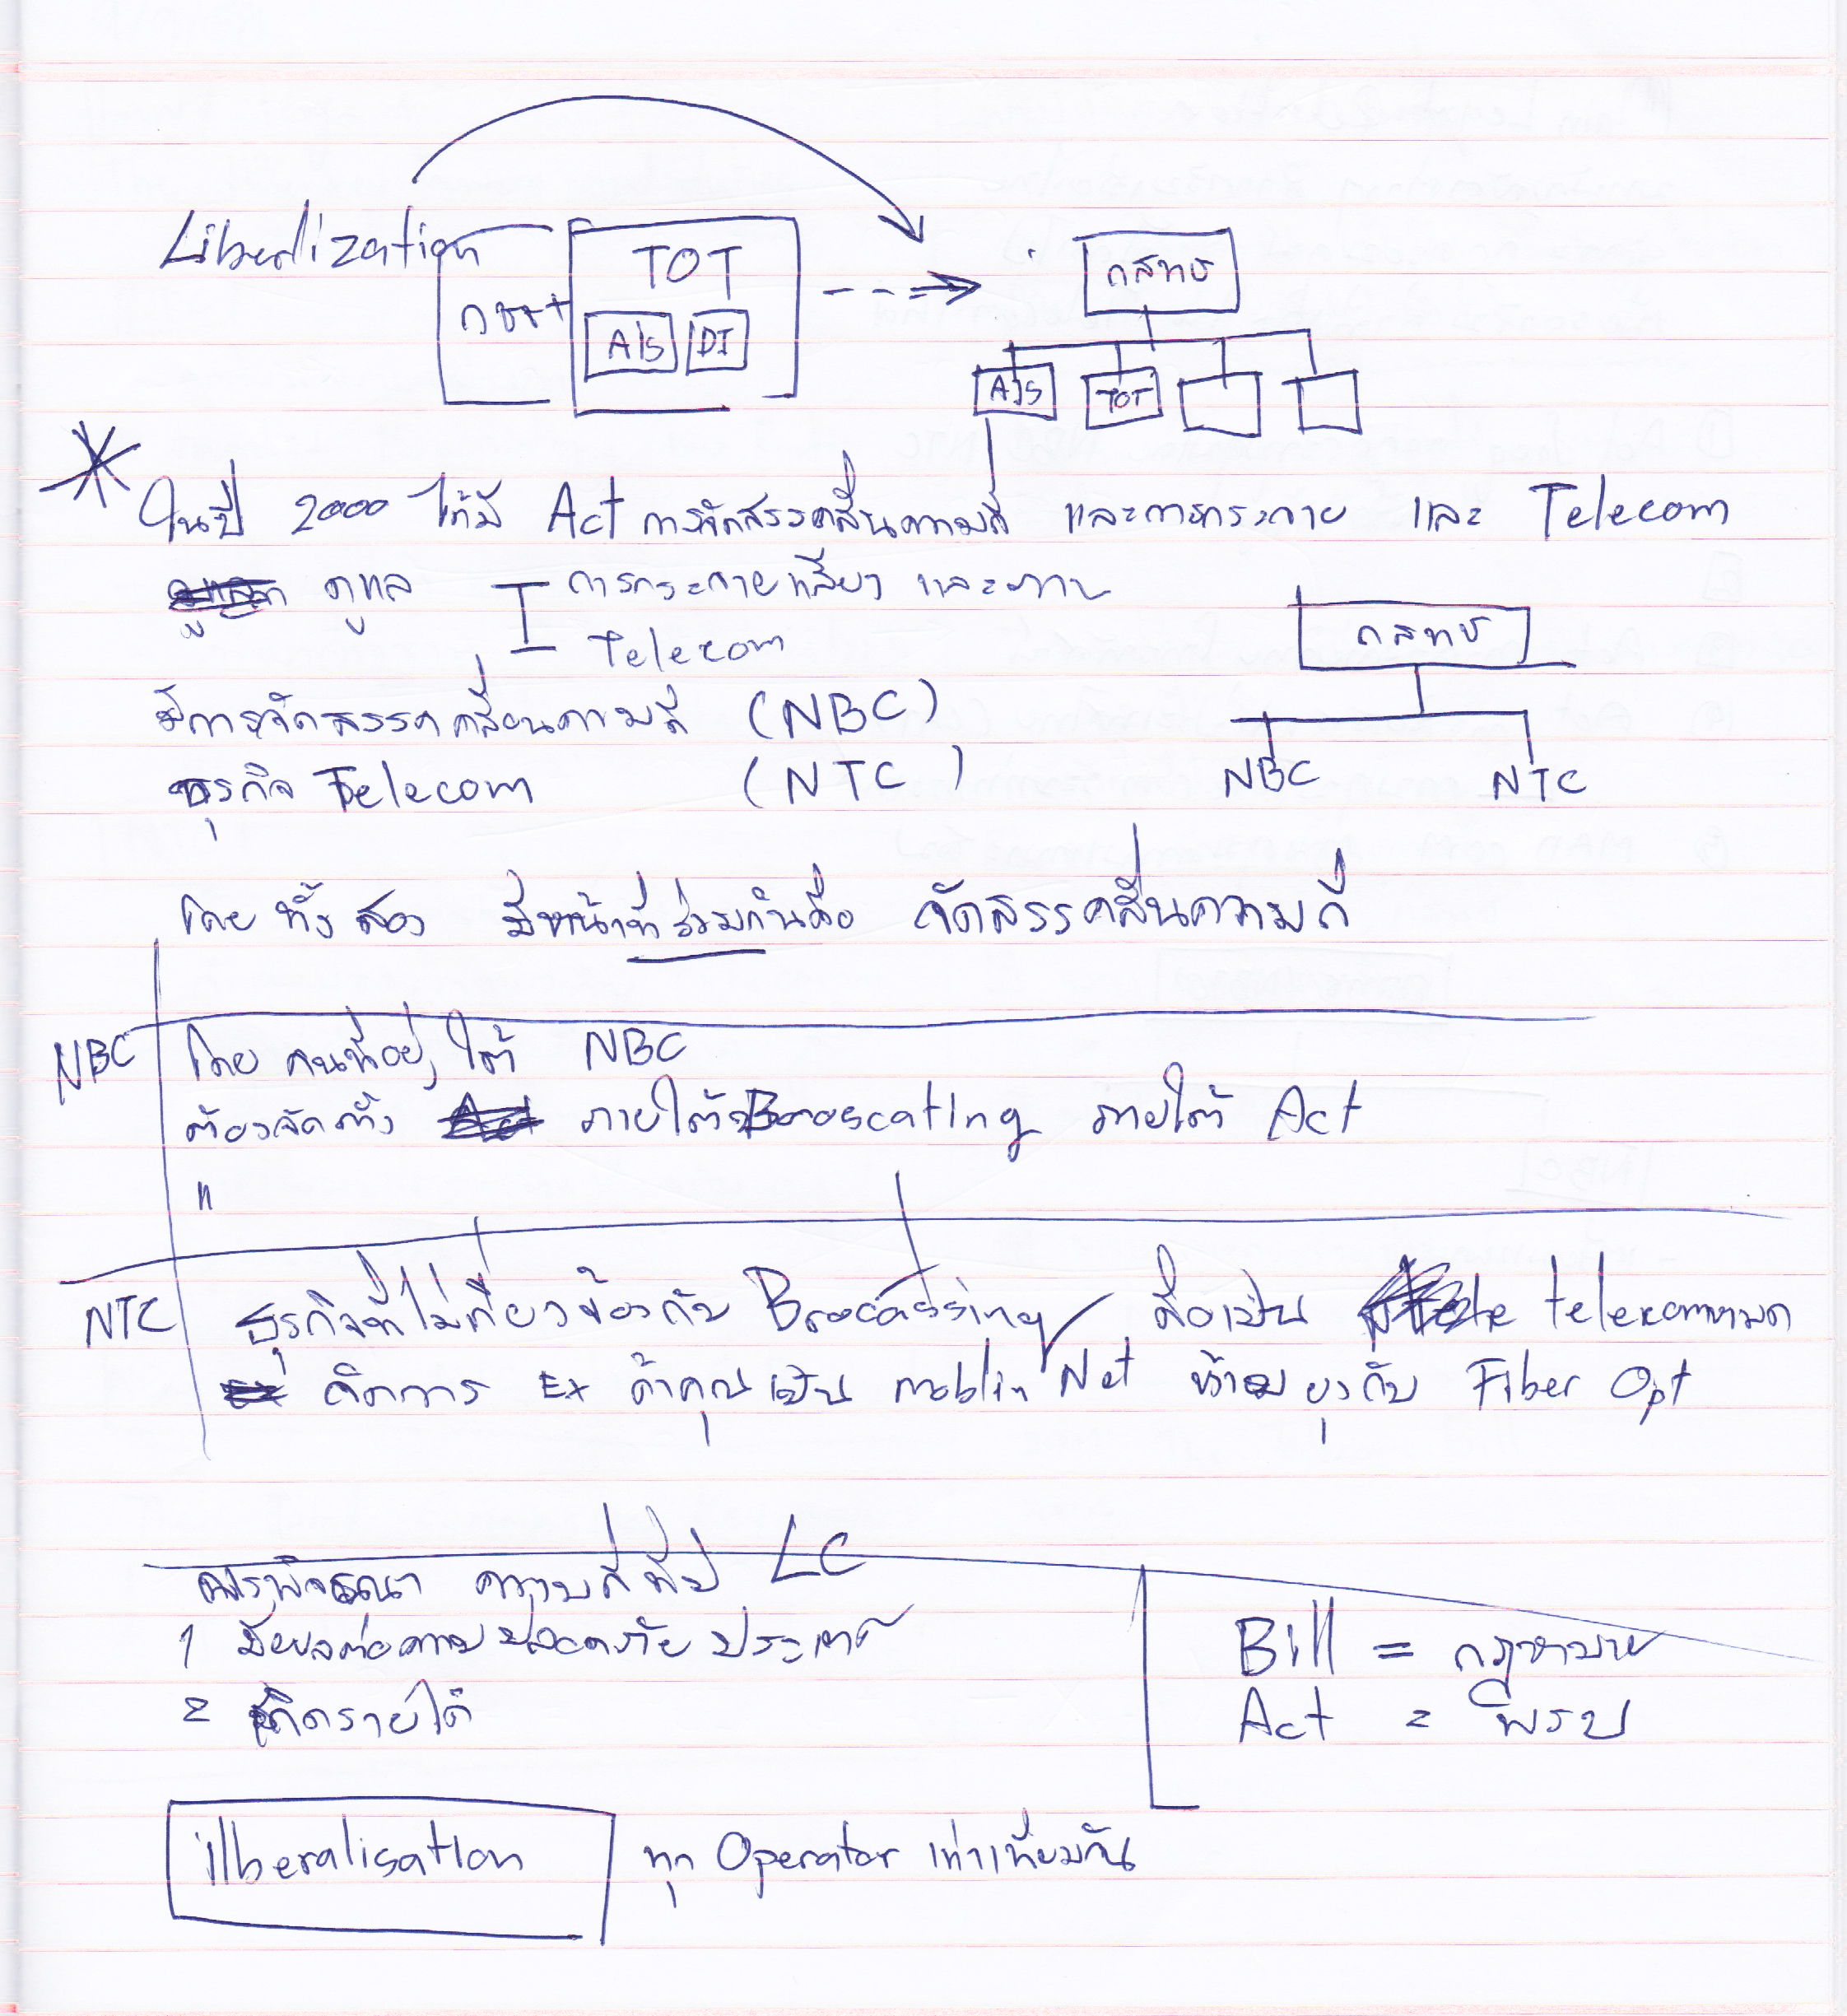 Liberlization
TOT
AIS DI
กสทช
AIS TOT
ในปี 2000 ได้มี Act การจัดสรรคลื่นความถี่ และการกระจาย และ Telecom
ดูแล การกระจายเสียง และภาพ
Telecom
กสทช
มีการจัดสรรคลื่นความถี่ (NBC)
ธุรกิจ Telecom (NTC)
NBC NTC
โดย ทั้งสอง มีหน้าที่ร่วมกันคือ จัดสรรคลื่นความถี่
NBC โดย คนที่อยู่ ใต้ NBC
ต้องจัดตั้ง ภายใต้ Broscating ภายใต้ Act
"
NTC ธุรกิจที่ไม่เกี่ยวข้องกับ Brocassing ถือเป็น telecom หมด
กิจการ Ex ถ้าคุณเป็น moblin Net ห้ามยุ่งกับ Fiber Opt
ความถี่ LC
1 มีผลต่อความปลอดภัย ประเทศ
2 เกิดรายได้
Bill = กฎหมาย
Act = พรบ
ilberalisation ทุก Operator เท่าเทียมกัน